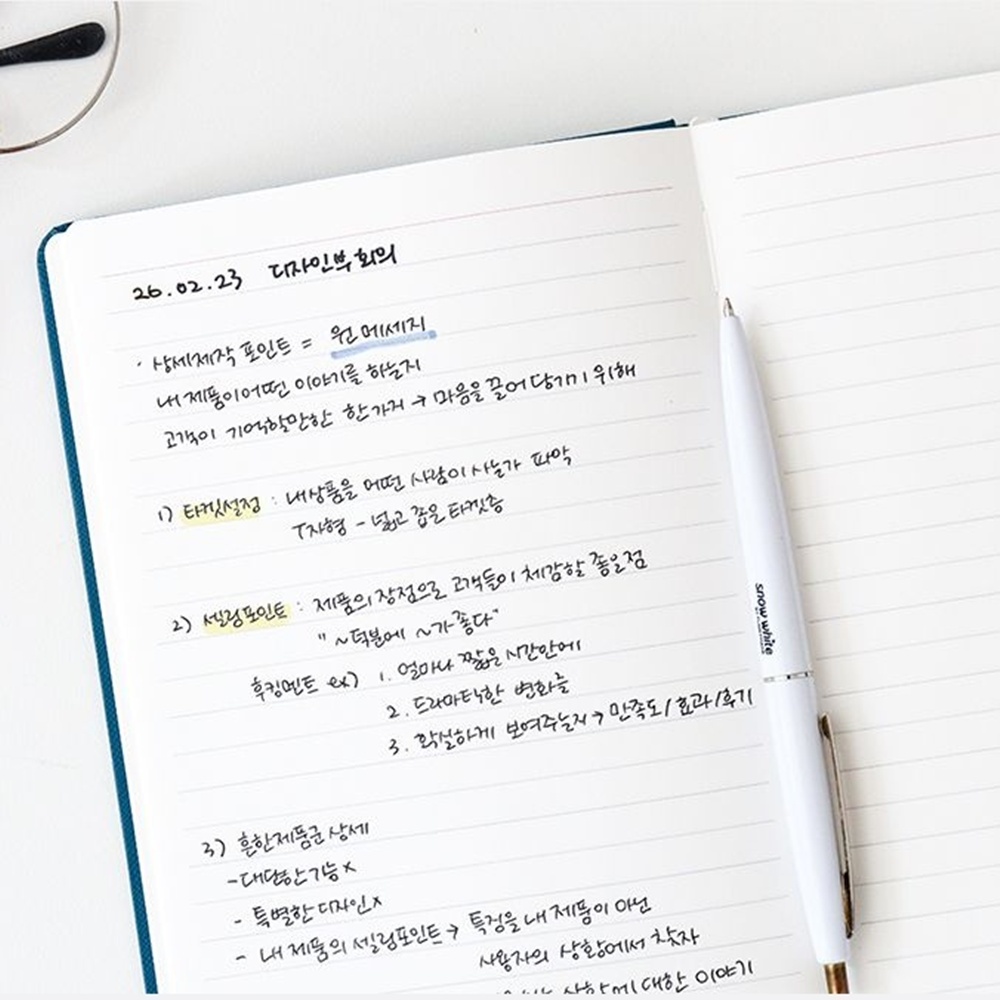 26.02.23 디자인부회의
· 상세제작 포인트 = 원메세지
내 제품이 어떤 이야기를 하는지
고객이 기억할만한 한가지 → 마음을 끌어당기기 위해
1) 타켓설정 : 내상품을 어떤 사람이 사는가 파악
T자형 - 넓고 좁은 타켓층
2) 셀링포인트 : 제품의 장점으로 고객들이 체감할 좋은점
" ~덕분에 ~가 좋다"
후킹멘트 ex) 1. 얼마나 짧은 시간안에
2. 드라마틱한 변화를
3. 확실하게 보여주는지 → 만족도/효과/후기
3) 흔한제품군 상세
- 대단한 기능 x
- 특별한 디자인 x
- 내 제품의 셀링포인트 → 특징을 내 제품이 아닌
사용자의 상황에서 찾자
상황에 대한 이야기
snow white